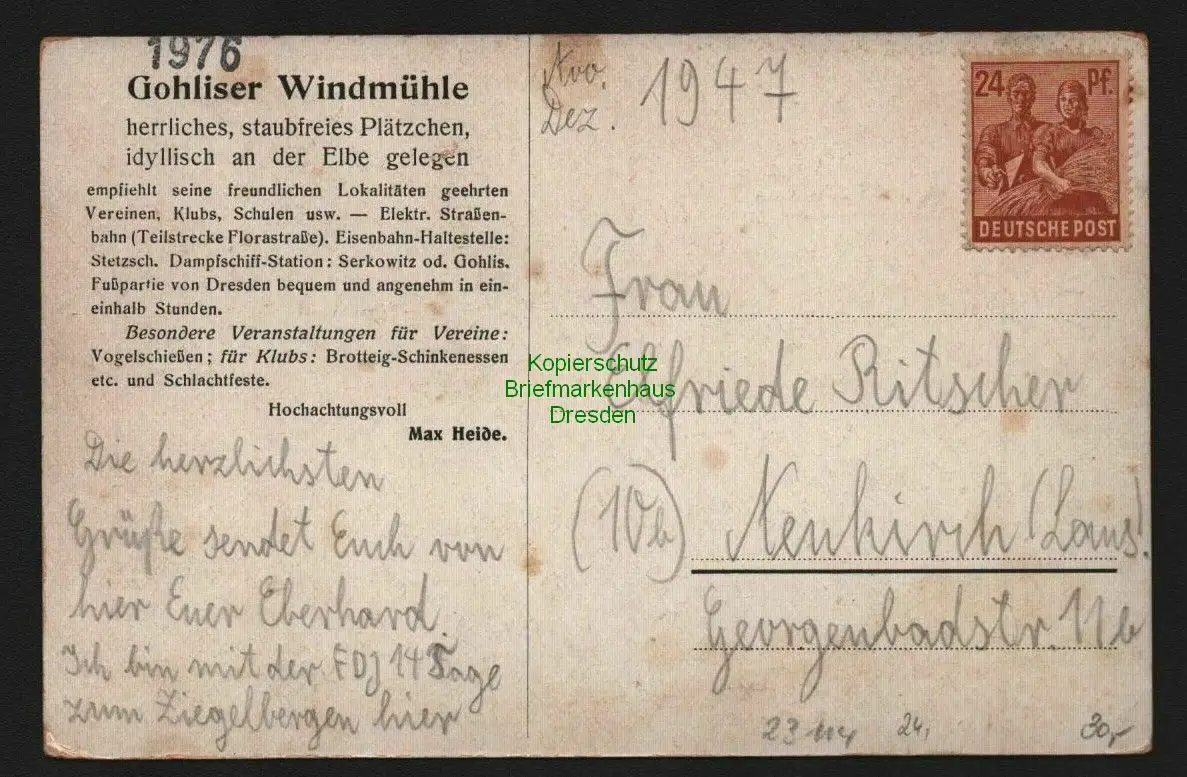 1976
Gohliser Windmühle
herrliches, staubfreies Plätzchen,
idyllisch an der Elbe gelegen
empfiehlt seine freundlichen Lokalitäten geehrten
Vereinen, Klubs, Schulen usw. — Elektr. Straßen-
bahn (Teilstrecke Florastraße). Eisenbahn-Haltestelle:
Stetzsch. Dampfschiff-Station: Serkowitz od. Gohlis.
Fußpartie von Dresden bequem und angenehm in ein-
einhalb Stunden.
Besondere Veranstaltungen für Vereine:
Vogelschießen; für Klubs: Brotteig-Schinkenessen
etc. und Schlachtfeste.
Hochachtungsvoll
Max Heide.
Die herzlichsten
Grüße sendet Euch von
hier Euer Eberhard.
Ich bin mit der FDJ 14 Tage
zum Ziegelbergen hier
Nvo.
Dez. 1947
24 Pf.
DEUTSCHE POST
Frau
Elfriede Ritscher
(10b) Neukirch (Laus.)
Georgenbadstr. 11b
Kopierschutz
Briefmarkenhaus
Dresden
23 24, 30,-